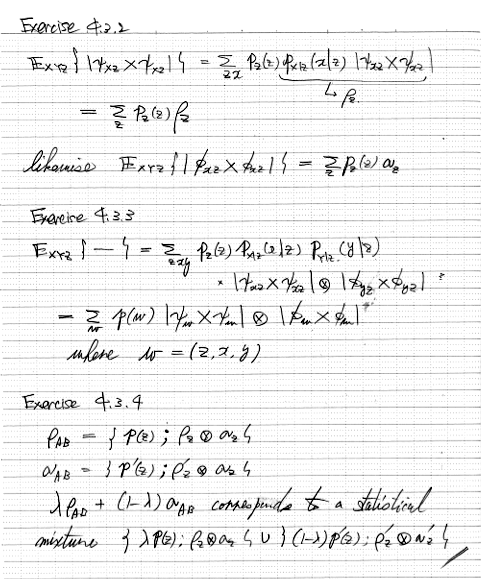 Exercise 4.2.2
𝔼_{XYZ} { |ψ_{xz}⟩⟨ψ_{xz}| } = Σ_{zx} p_z(z) p_{x|z}(x|z) |ψ_{xz}⟩⟨ψ_{xz}|
↳ ρ_z.
= Σ_z p_z(z) ρ_z
likewise 𝔼_{XYZ} { |ϕ_{xz}⟩⟨ϕ_{xz}| } = Σ_z p_z(z) σ_z
Exercise 4.3.3
𝔼_{XYZ} { — } = Σ_{zxy} p_z(z) p_{x|z}(x|z) p_{Y|z}(y|z)
· |ψ_{xz}⟩⟨ψ_{xz}| ⊗ |ϕ_{yz}⟩⟨ϕ_{yz}|
= Σ_w p(w) |ψ_w⟩⟨ψ_w| ⊗ |ϕ_w⟩⟨ϕ_w|
where w = (z, x, y)
Exercise 4.3.4
ρ_{AB} = { p(z) ; ρ_z ⊗ σ_z }
σ_{AB} = { p'(z) ; ρ'_z ⊗ σ_z }
λρ_{AB} + (1-λ)σ_{AB} corresponds to a statistical
mixture { λp(z); ρ_z⊗σ_z } ∪ { (1-λ)p'(z); ρ'_z ⊗ σ'_z }